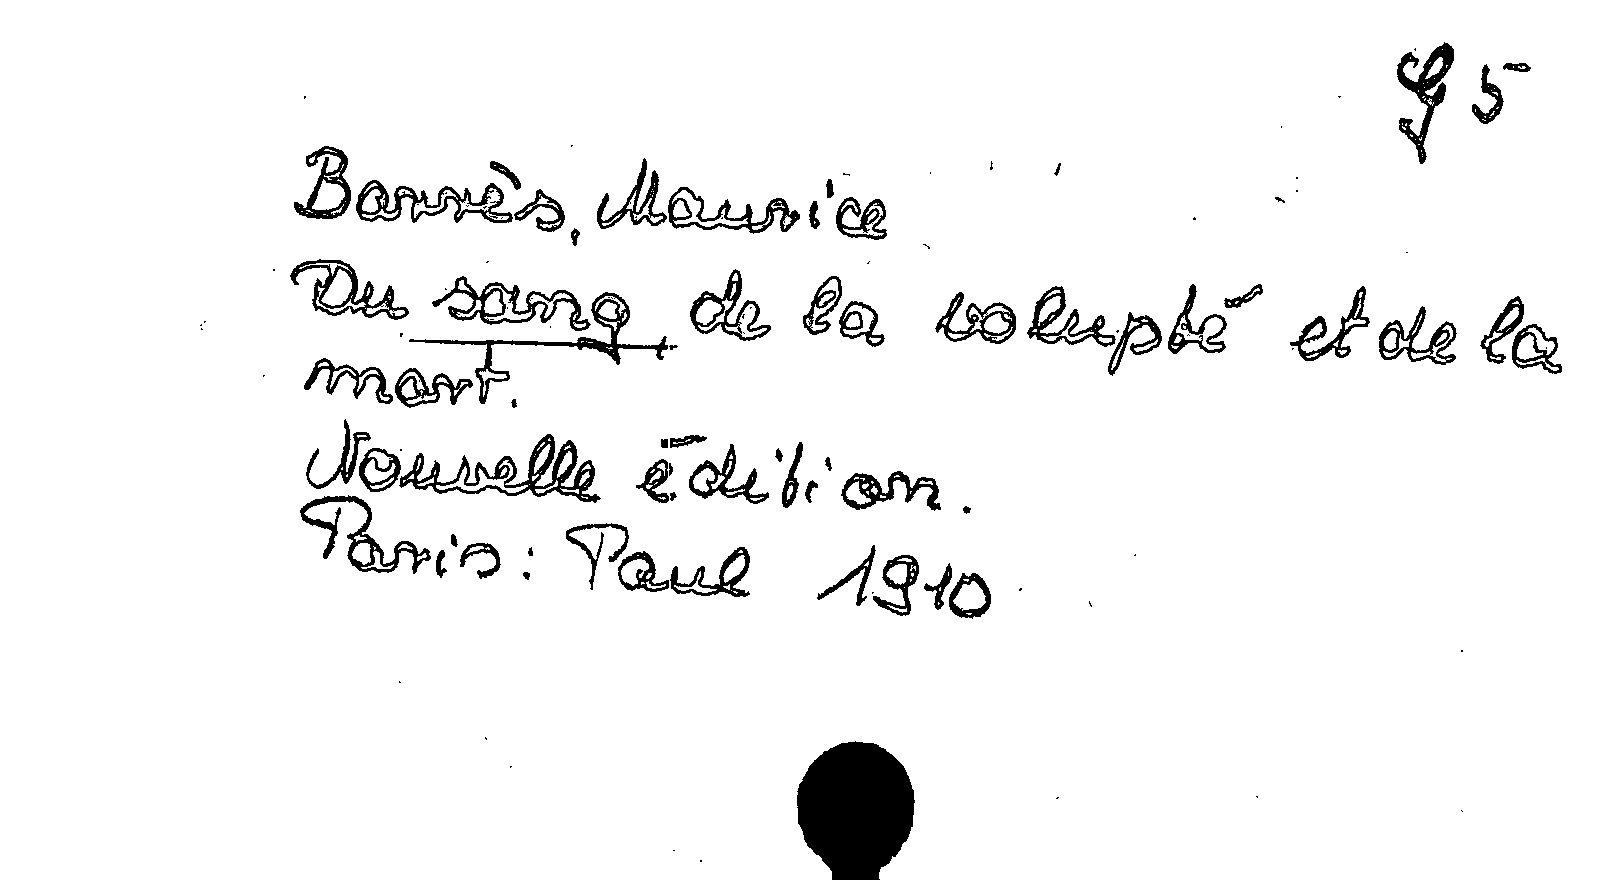 G 5
Barrès, Maurice
Du sang de la volupté et de la
mort.
Nouvelle édition.
Paris: Paul 1910